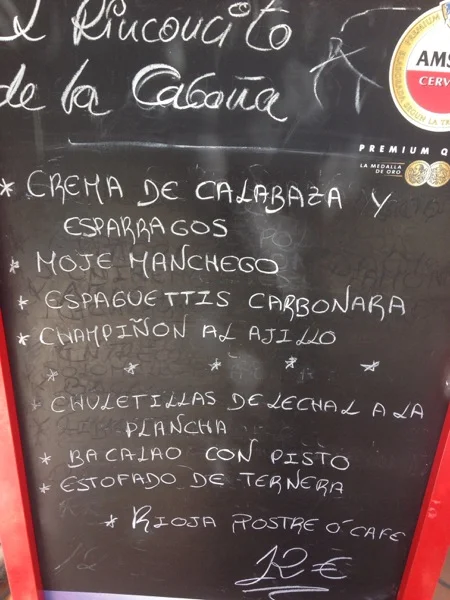 l Rinconcito
de la Cabaña
PREMIUM
AMS
CERV
SEGÚN LA TR
PREMIUM Q
LA MEDALLA
DE ORO
* CREMA DE CALABAZA Y
ESPARRAGOS
* MOJE MANCHEGO
* ESPAGUETTIS CARBONARA
* CHAMPIÑON AL AJILLO
* * * * *
* CHULETILLAS DE LECHAL A LA
PLANCHA
* BACALAO CON PISTO
* ESTOFADO DE TERNERA
* RIOJA POSTRE O' CAFE
12 €